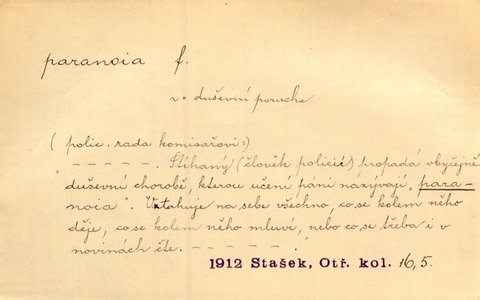 paranoia f.
v. duševní porucha
(polic. rada komisařovi:)
- - - - -. Stíhaný (člověk policií) propadá obyčejně
duševní chorobě, kterou učení páni nazývají „para-
noia“. Vztahuje na sebe všechno, co se kolem něho
děje, co se kolem něho mluví, nebo co se třeba i v
novinách čte. - - - - -
1912 Stašek, Otř. kol. 16,5.